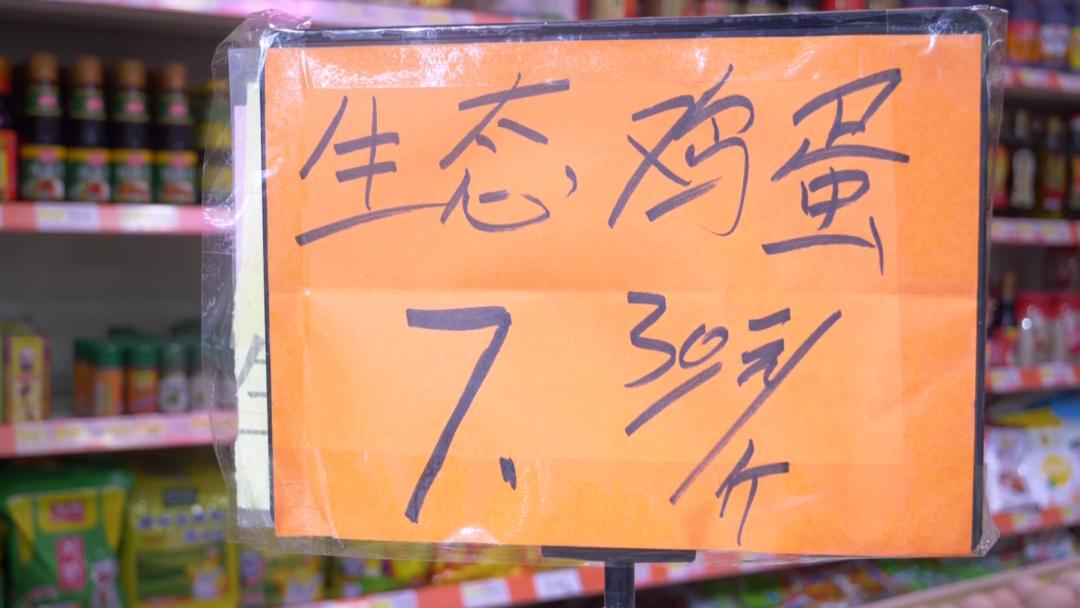 生态鸡蛋
7.30元/斤